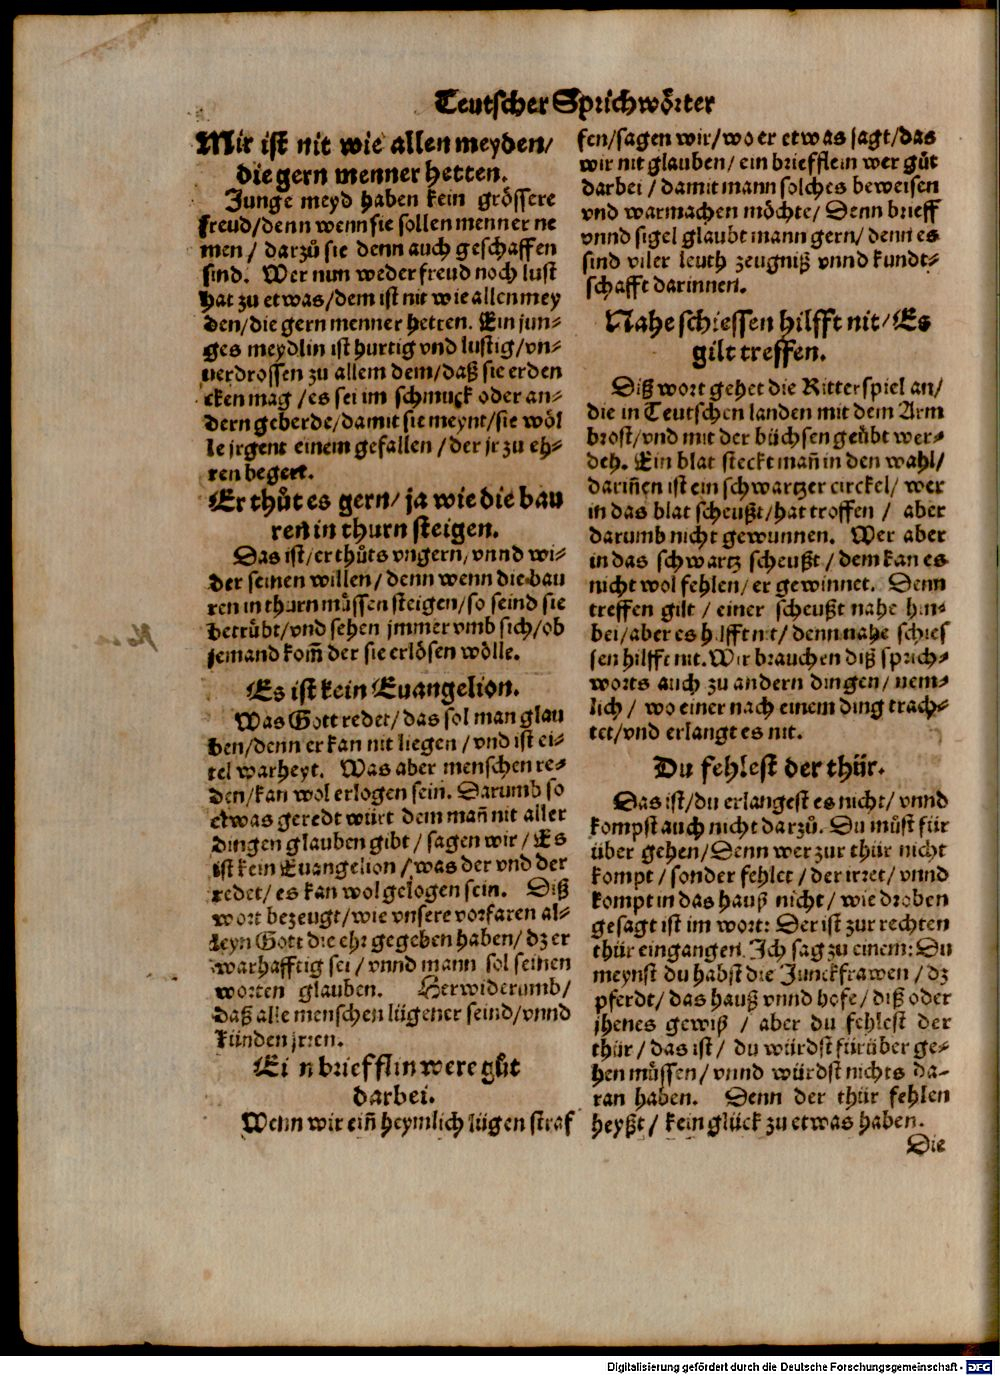 Teutscher Sprichwörter
Mir ist nit wie allen meyden/
die gern menner hetten.
Junge meyd haben kein grössere
freud/denn wenn sie sollen menner ne
men / darzů sie denn auch geschaffen
sind. Wer nun weder freud noch lust
hat zu etwas/dem ist nit wie allen mey
den/die gern menner hetten. Ein jun-
ges meydlin ist hurtig vnd lustig/vn-
uerdrossen zu allem dem/daß sie erden
cken mag /es sei im schmuck oder an-
dern geberde/damit sie meynt/sie wöl
le jrgent einem gefallen /der jr zu eh-
ren begert.
Er thůt es gern/ ja wie die bau
ren in thurn steigen.
Das ist/er thůts vngern/vnnd wi-
der seinen willen/denn wenn die bau
ren in thurn müssen steigen/so seind sie
betrübt/vnd sehen jmmer vmb sich/ob
jemand kom̃ der sie erlösen wölle.
Es ist kein Euangelion.
Was Gott redet/das sol man glau
ben/denn er kan nit liegen /vnd ist ei-
tel warheyt. Was aber menschen re-
den/kan wol erlogen sein. Darumb so
etwas geredt würt dem mañ nit aller
dingen glauben gibt / sagen wir / Es
ist kein Euangelion /was der vnd der
redet/ es kan wol gelogen sein. Diß
wort bezeugt/wie vnsere vorfaren al-
leyn Gott die ehr gegeben haben/ dz er
warhafftig sei / vnnd mann sol seinen
worten glauben. Herwiderumb/
daß alle menschen lügener seind/vnnd
künden jrren.
Ein briefflin were gůt
darbei.
Wenn wir eiñ heymlich lügen straf
fen/sagen wir/wo er etwas sagt/das
wir nit glauben/ ein briefflein wer gůt
darbei / damit mann solches beweisen
vnd warmachen möchte/ Denn brieff
vnnd sigel glaubt mann gern/ denn es
sind viler leuth zeugniß vnnd kundt-
schafft darinnen.
Nahe schiessen hilfft nit/ Es
gilt treffen.
Diß wort gehet die Ritterspiel an/
die in Teutschen landen mit dem Arm
brost/vnd mit der büchsen geübt wer-
deh. Ein blat steckt mañ in den wahl/
dariñen ist ein schwartzer circkel/ wer
in das blat scheußt/hat troffen / aber
darumb nicht gewunnen. Wer aber
in das schwartz scheußt / dem kan es
nicht wol fehlen/ er gewinnet. Denn
treffen gilt / einer scheußt nahe hin-
bei/aber es hilfft nit/ denn nahe schies
sen hilfft nit. Wir brauchen diß sprich-
worts auch zu andern dingen/ nem-
lich / wo einer nach einem ding trach-
tet/vnd erlangt es nit.
Du fehlest der thür.
Das ist/du erlangest es nicht/ vnnd
kompst auch nicht darzů. Du můst für
über gehen/Denn wer zur thür nicht
kompt / sonder fehlet / der irret / vnnd
kompt in das hauß nicht / wie droben
gesagt ist im wort: Der ist zur rechten
thür eingangen. Ich sag zu einem: Du
meynst du habst die Junckfrawen / dz
pferdt/ das hauß vnnd hofe/ diß oder
jhenes gewiß / aber du fehlest der
thür / das ist / du würdst fürüber ge-
hen müssen/ vnnd würdst nichts da-
ran haben. Denn der thür fehlen
heyßt/ kein glück zu etwas haben.
Die
Digitalisierung gefördert durch die Deutsche Forschungsgemeinschaft - DFG